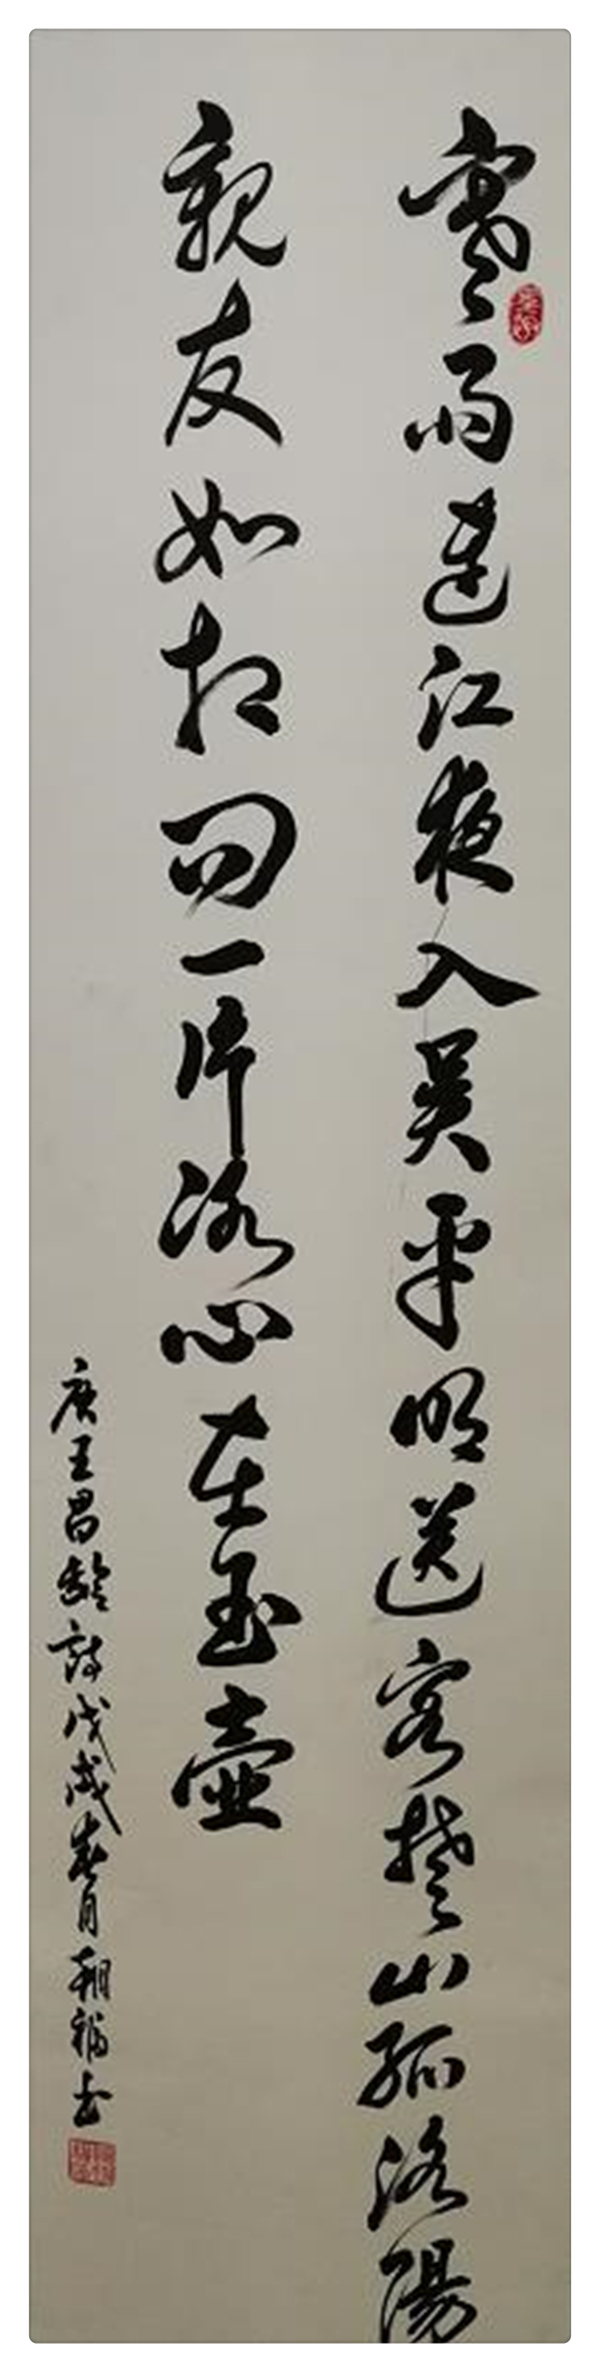 寒雨連江夜入吴平明送客楚山孤洛陽
親友如相问一片冰心在玉壶
唐王昌龄詩戊戌春月翔福书